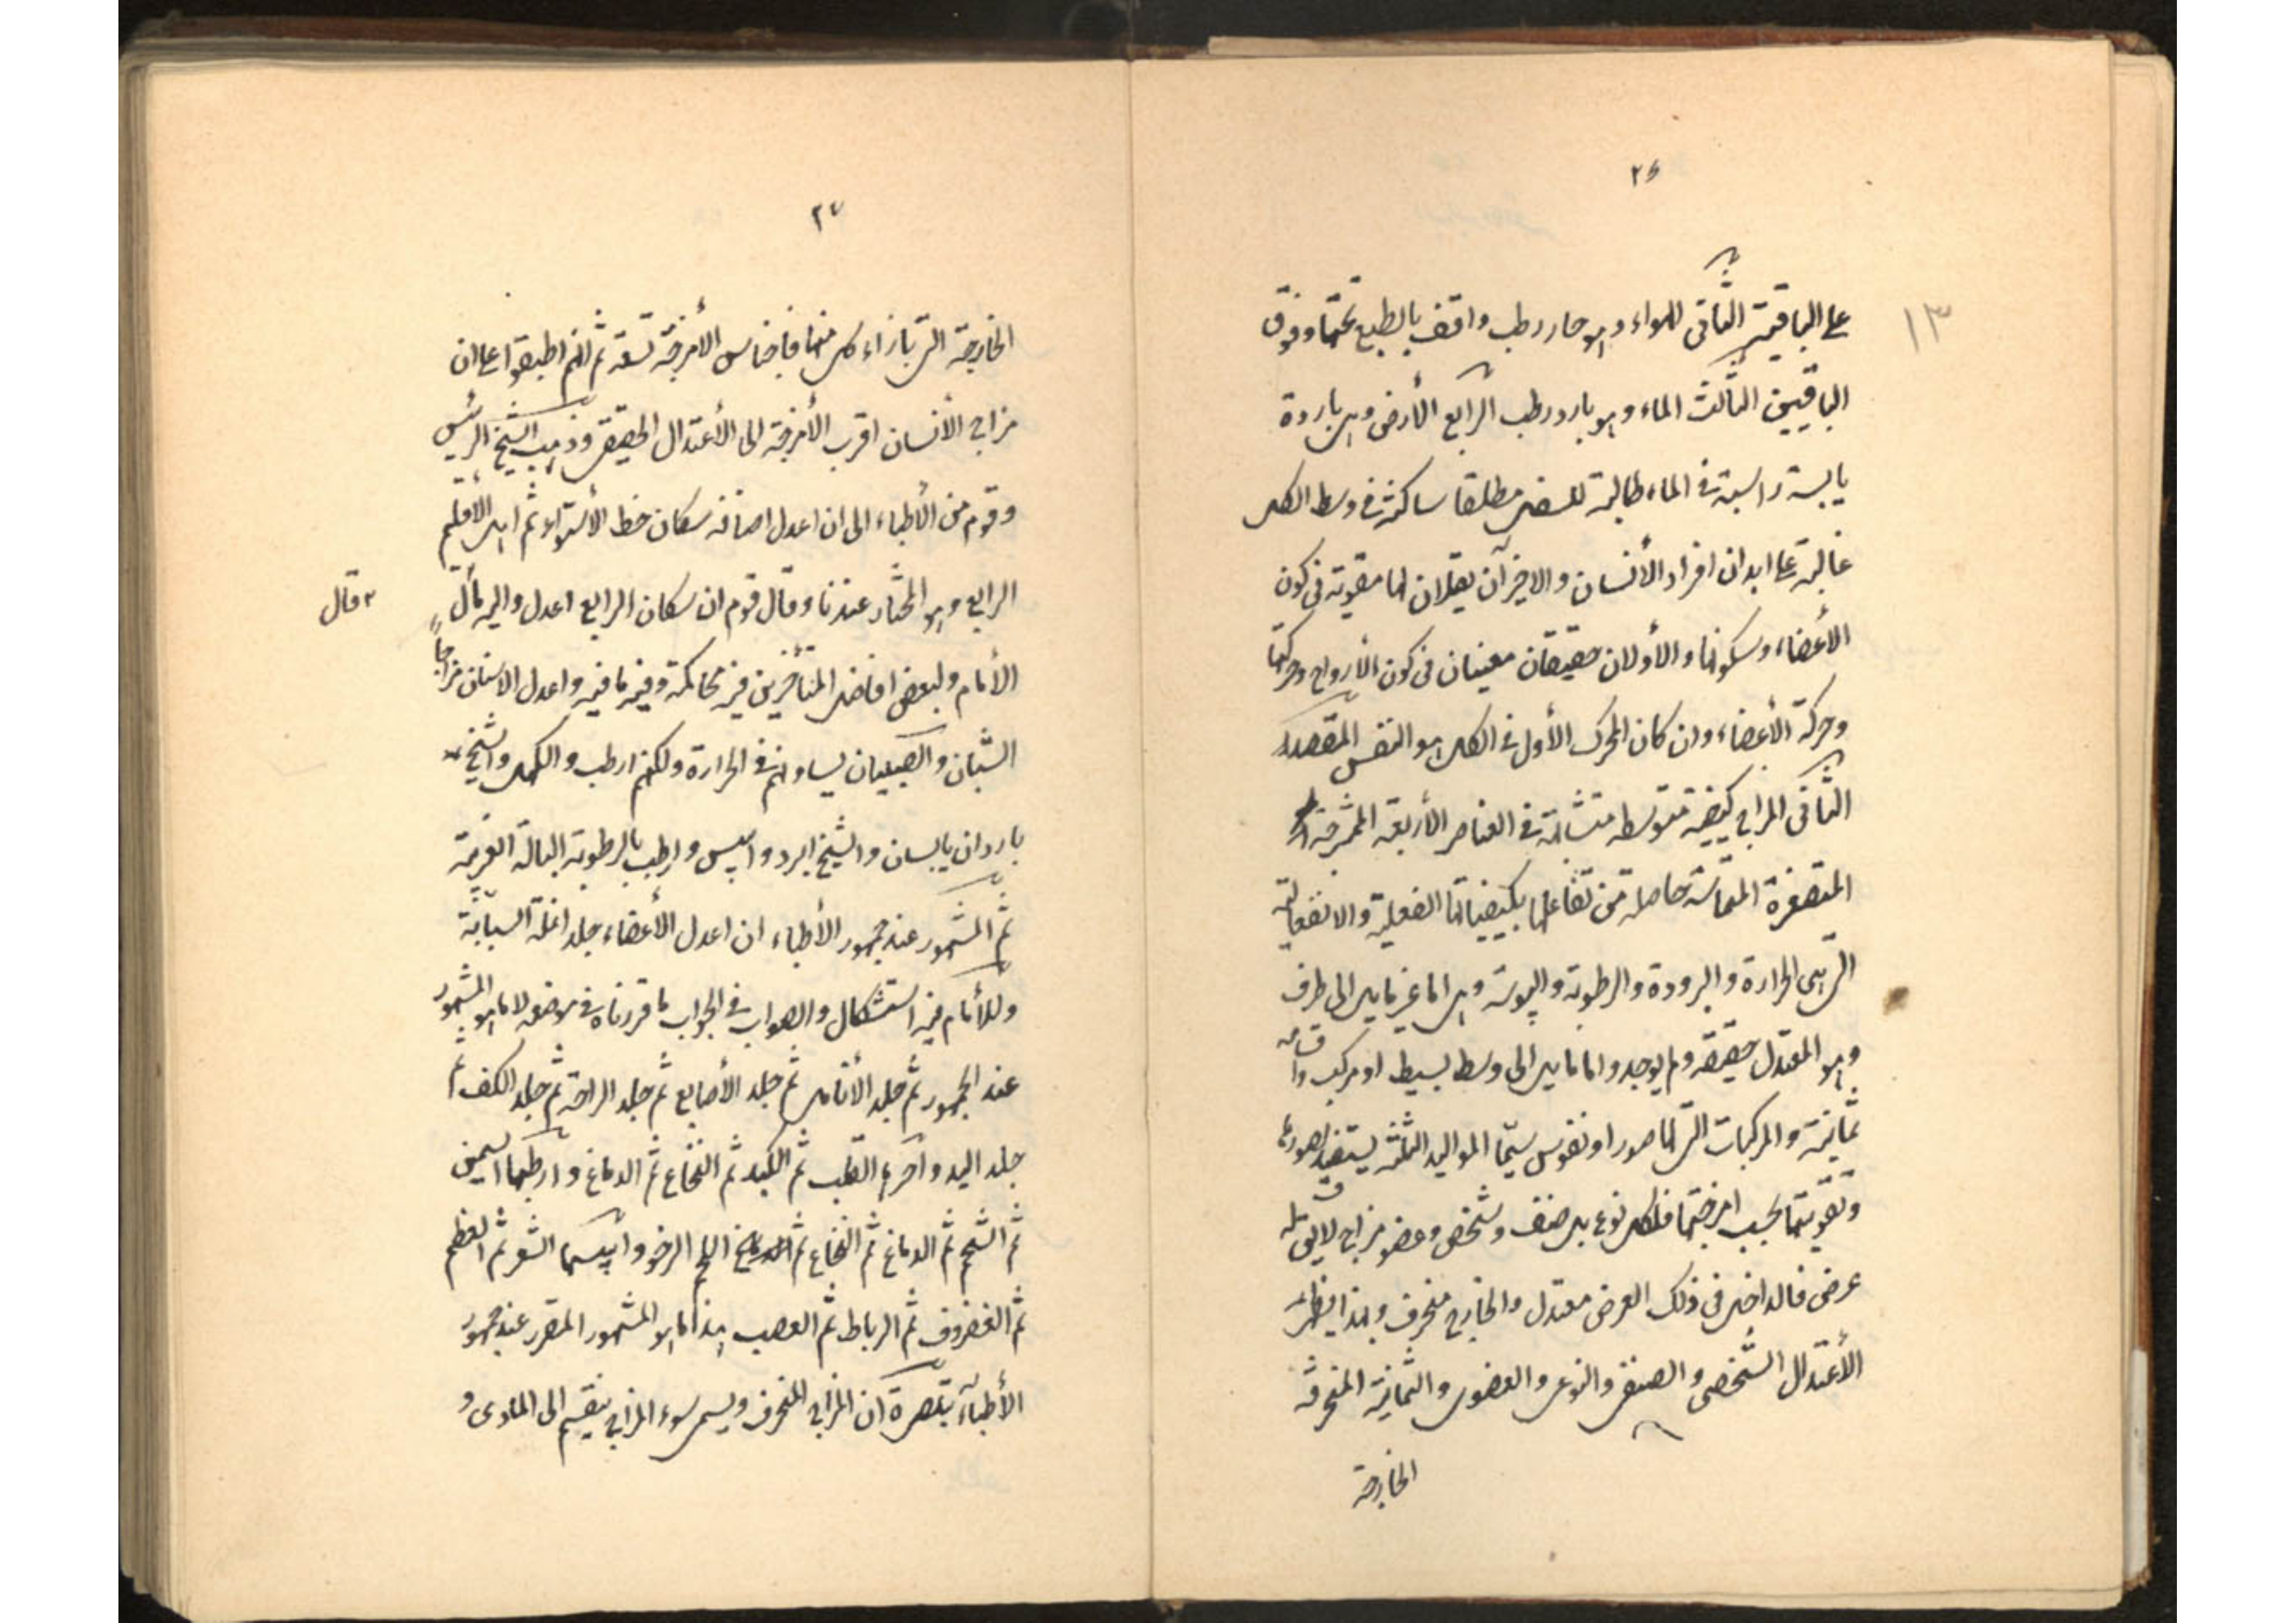 ٢٦
١٣
على الباقية الثانى الهواء وهو حار رطب واقف بالطبع تحتها وفوق
الباقيين الثالث الماء وهو بارد رطب الرابع الأرض وهى باردة
يابسة راسبة فى الماء طالبة للسفل مطلقا ساكنة فى وسط الكل
غالبة على ابدان افراد الأنسان والاخيرآن ثقيلان لهما معونة فى كون
الأعضاء وسكونها والأولان خفيفان معينان فى كون الأرواح وحركتها
وحركة الأعضاء وان كان المحرك الأول فى الكل هو النفس المقصد
الثانى المزاج كيفية متوسطه متشابهة فى العناصر الأربعة الممتزجة
المتصغرة المتماسّة حاصلة من تفاعلها بكيفياتها الفعلية والانفعالية
التى هى الحرارة والبرودة والرطوبة واليبوسة وهى اما غير مايل الى طرف
وهو المعتدل حقيقة ولم يوجد واما مايل الى وسط بسيط او مركب واقسامه
ثمانية والمركبات التى لها صور او نفوس سيّما المواليد الثلثة يستفيد صورها
وتقويتها بحسب امزجتها فلكل نوع بل صنف وشخص وعضو مزاج لايق له
عرض فالداخل فى ذلك العرض معتدل والخارج منحرف وبهذا يظهر
الأعتدال الشخصى والصنفى والنوعى والعضوى والثمانية المنحرفة
الخارجة
٢٧
الخارجة التى بازاء كل منها فاجناس الأمزجة تسعة ثم انهم اطبقوا على ان
مزاج الأنسان اقرب الأمزجة الى الأعتدال الحقيقى وذهب الشيخ الرئيس
وقوم من الأطباء الى ان اعدل اصنافه سكان خط الأستواء ثم اهل الأقليم
الرابع وهو المختار عندنا وقال قوم ان سكان الرابع اعدل واليه مال
قال
الأمام ولبعض افاضل المتأخرين فيه محاكمة وفيه ما فيه واعدل الاسنان مزاجا
الشبان والصبيان يساونهم فى الحرارة ولكنهم ارطب والكهل والشيخ
باردان يابسان والشيخ ابرد وايبس وارطب بالرطوبة البالة الغريبة
ثم المشهور عند جمهور الأطباء ان اعدل الأعضاء جلد انملة السبّابة
وللأمام فيه استشكال والصواب فى الجواب ما قررناه فى موضعه لا ما هو المشهور
عند الجمهور ثم جلد الأنامل ثم جلد الأصابع ثم جلد الراحة ثم جلد الكف ثم
جلد اليد واحرها القلب ثم الكبد ثم النخاع ثم الدماغ وارطبها السمين
ثم الشحم ثم الدماغ ثم النخاع ثم اللحم الرخو وايبسها الشعر ثم العظم
ثم الغضروف ثم الرباط ثم العصب هذا ما هو المشهور المقرر عند جمهور
الأطباء تبصرة ان المزاج المنحرف ويسمى سوء المزاج ينقسم الى المادى و